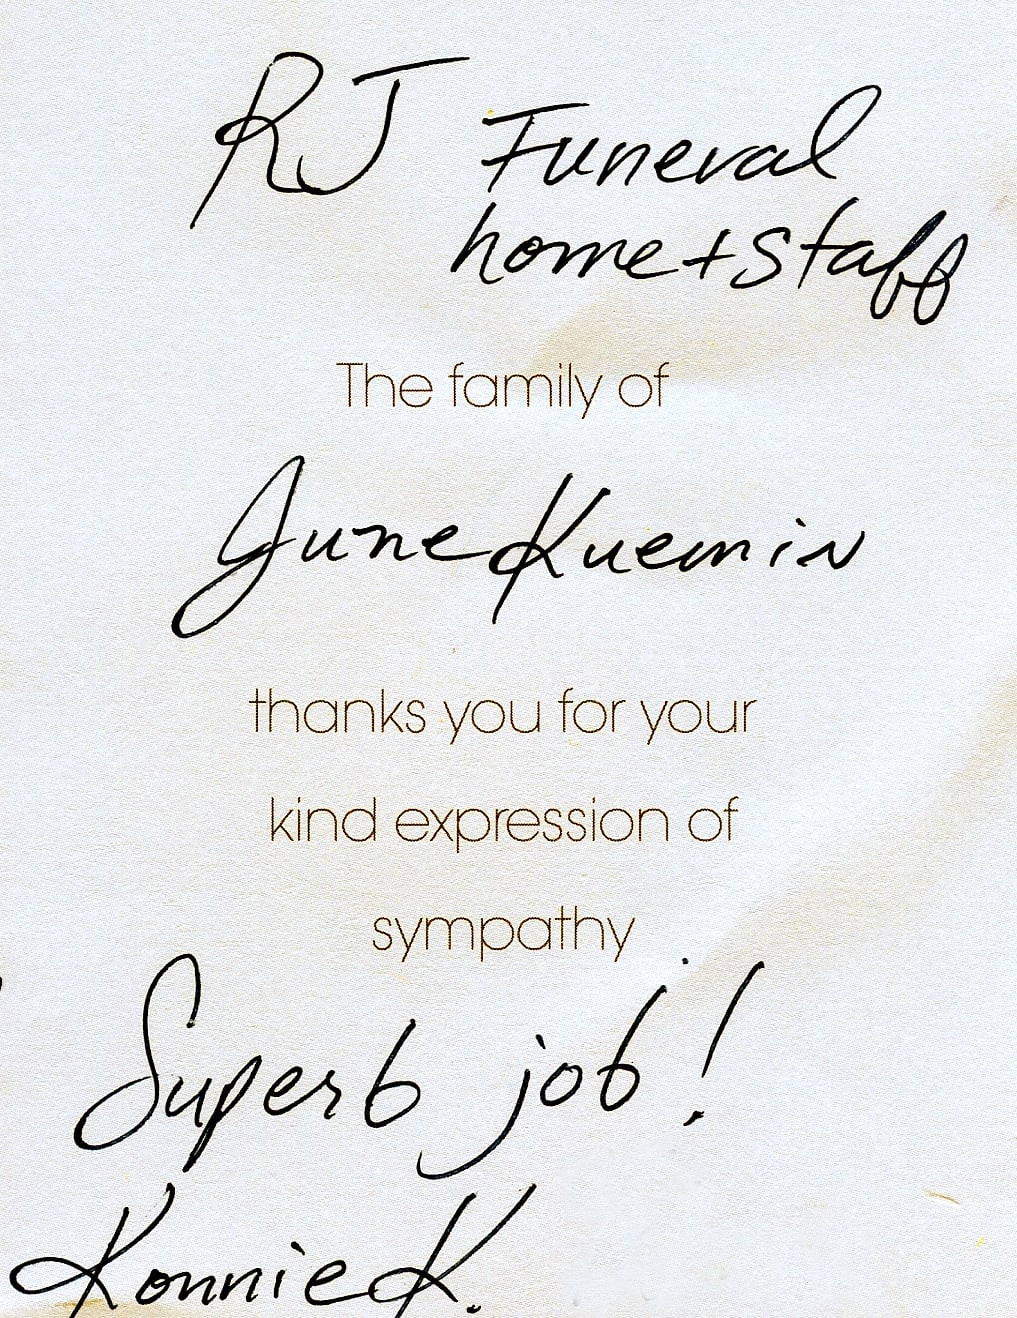 RJ Funeral
home + Staff
The family of
June Kuemin
thanks you for your
kind expression of
sympathy
Superb job!
Konnie K.